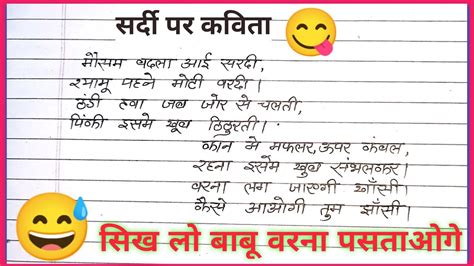 सर्दी पर कविता
मौसम बदला आई सरदी,
श्यामु पहने मोटी वरदी।
ठंडी हवा जब जोर से चलती,
पिंकी इसमे खूब ठिठुरती।
कान मे मफलर, ऊपर कंबल,
रहना इसमे खुब संभलकर।
वरना लग जाएगी खाँसी।
कैसे आओगी तुम झाँसी।
सिख लो बाबू वरना पसताओगे